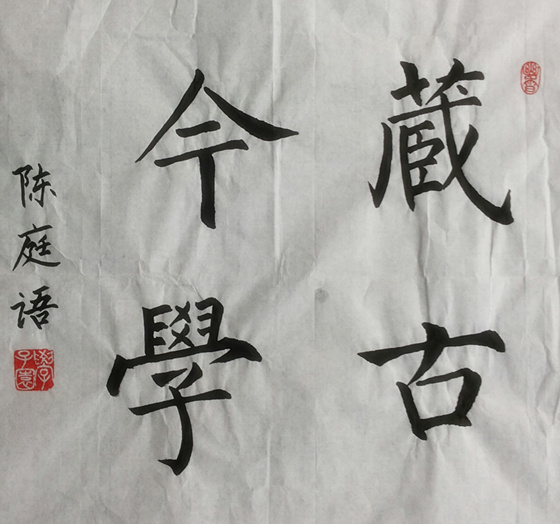 藏古
今學
陈庭语